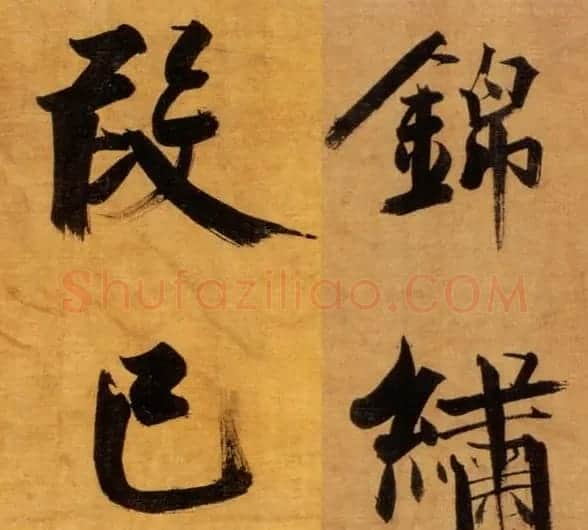 錦繡
段已
Shufaziliao.COM